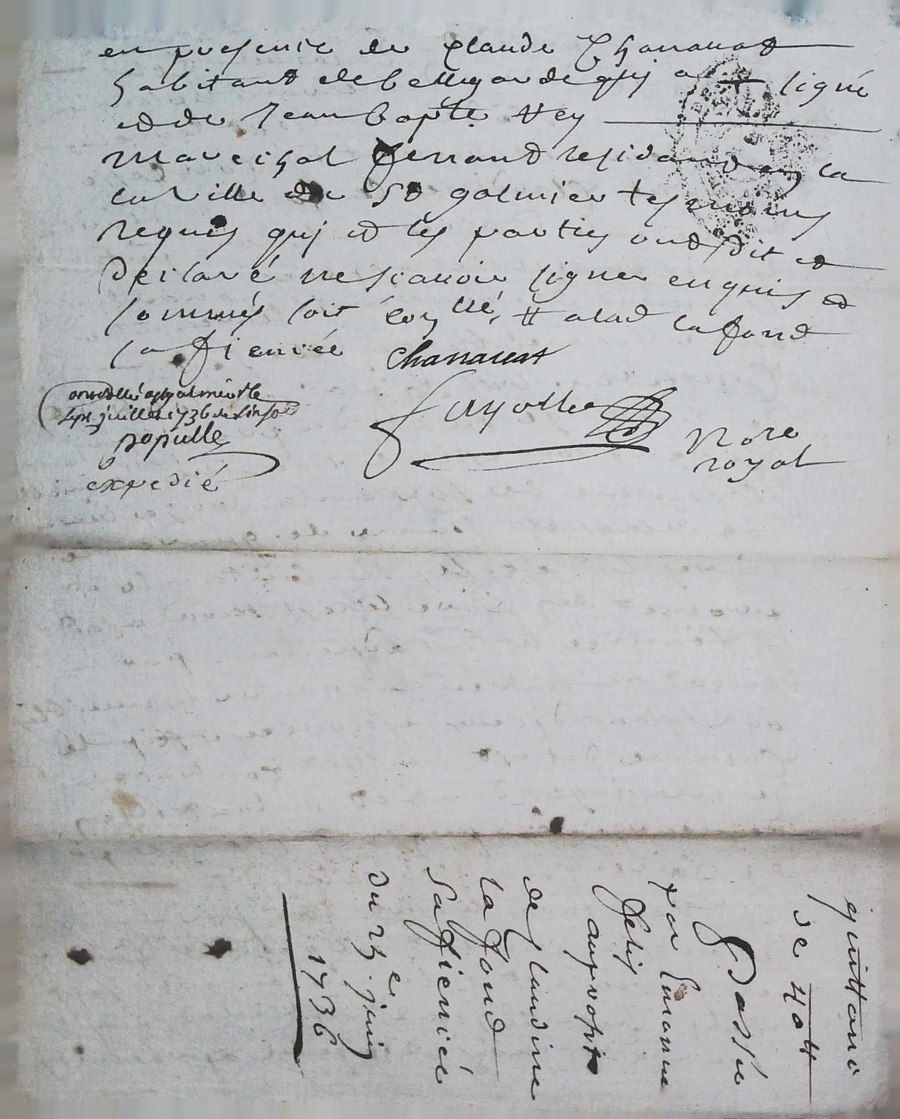 en presence de Claude Chanauat
habitant de bellegarde qui a signé
et de Jean bapte Rey
marechal ferrant residant en la
la ville de St galmier tesmoins
requis qui et les parties ont dit et
declaré ne scauoir signer enquis et
sommés soit la fond
sa fiencée Chanauat
controllé a St galmier le
juillet 1736
populle
expedié
fayolle
Nore
royal
quittance
de 40 ll
passé
par
felix
au proffit
de glaudine
la fond
sa fiencée
du 25e juin
1736